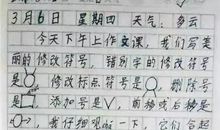 3月6日 星期四 天气：多云
今天下午上作文课，我们写美
丽的修改符号，错别字的修改符号
是○，修改标点符号是○，删除号
是□，添加号是✓，前移或后移是
我仔细观察一下，它们合起